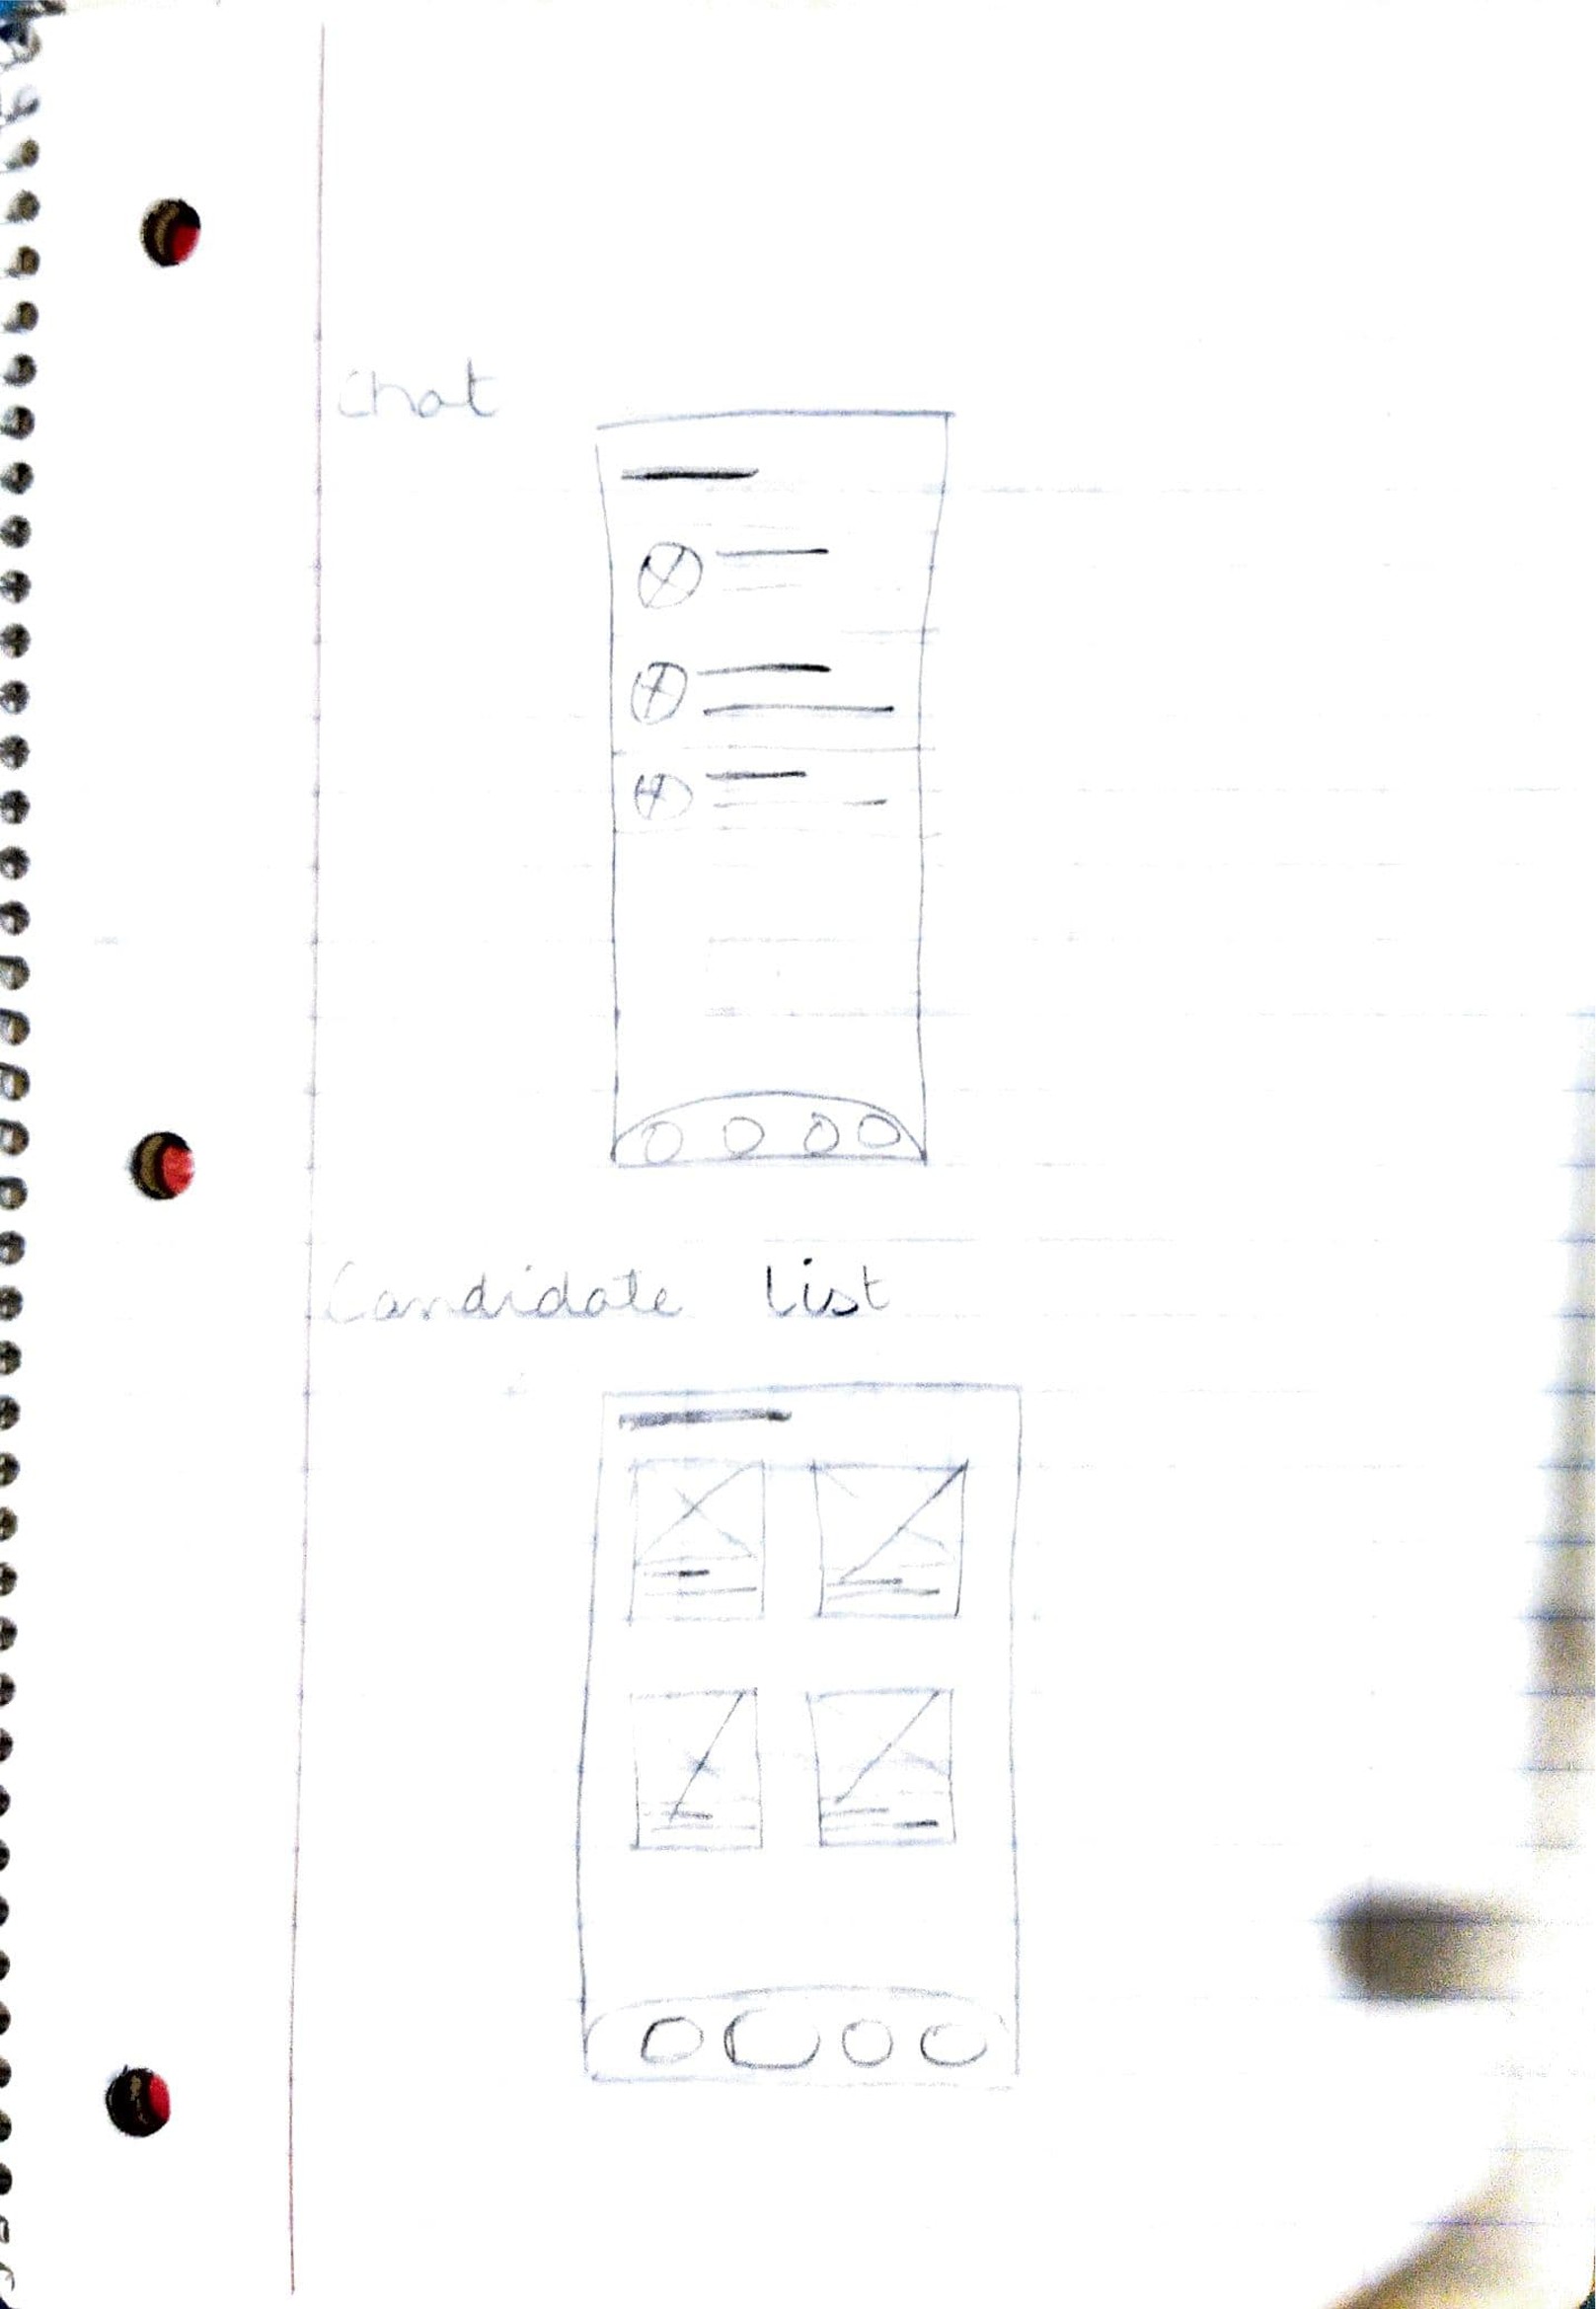 Chat
Candidate list